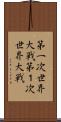 第一次世界
大戦第１次
世界大戦